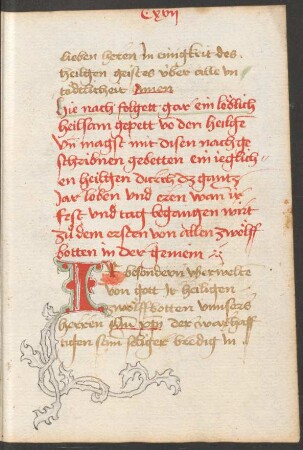 Cxvij
lieben heren In einigkeit des
heiligen geistes über alle un
tödtlicheit Amen
Hie nach folgett gar ein lodlich
heilsam gepett vo den heilige
Un magst mit disen nach ge
schribnen gebetten ein ieglich
en heiligen durch dz gantz
Jar loben und eren wan ir
fest und tag begangen wirt
zu dem ersten von allen zwölff
botten in der gemein
Ir besondern usserwelte
von gott Ir heiligen
zwölffbotten unnsers
herren der warhaff
tigen sun seliger bredig In